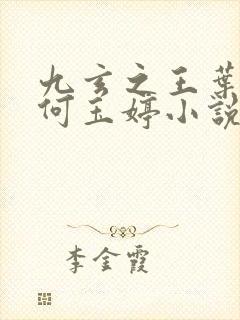 九玄之王葉
何玉婷小說
李金霞